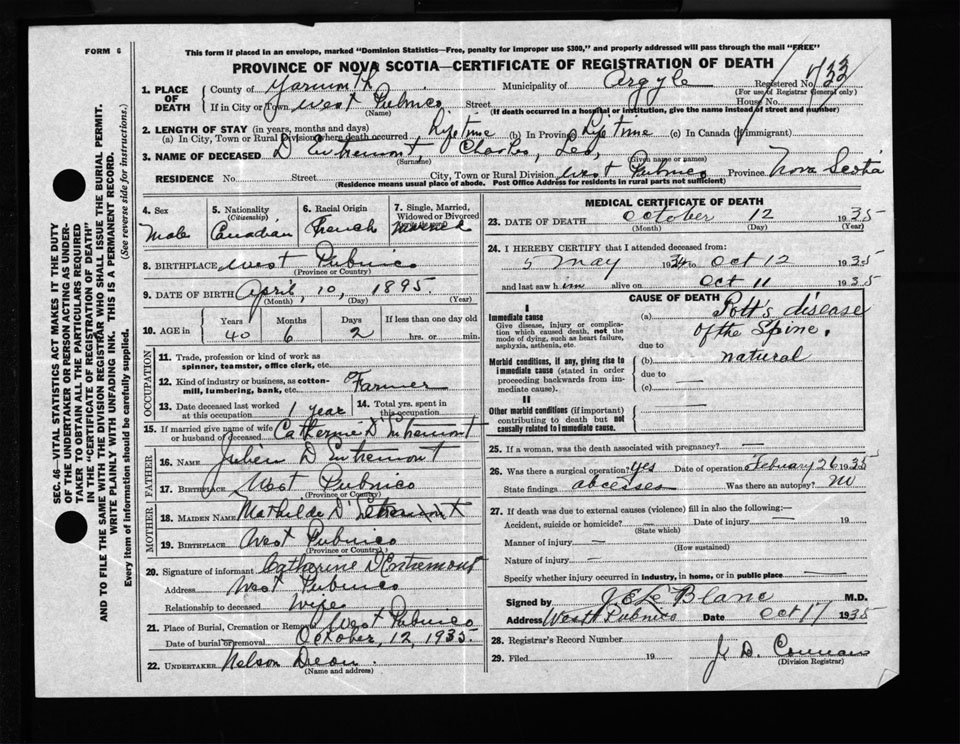 FORM 6
This form if placed in an envelope, marked "Dominion Statistics—Free, penalty for improper use $300," and properly addressed will pass through the mail "FREE"
PROVINCE OF NOVA SCOTIA—CERTIFICATE OF REGISTRATION OF DEATH
SEC. 46—VITAL STATISTICS ACT MAKES IT THE DUTY
OF THE UNDERTAKER OR PERSON ACTING AS UNDER-
TAKER TO OBTAIN ALL THE PARTICULARS REQUIRED
IN THE "CERTIFICATE OF REGISTRATION OF DEATH"
AND TO FILE THE SAME WITH THE DIVISION REGISTRAR WHO SHALL ISSUE THE BURIAL PERMIT.
WRITE PLAINLY WITH UNFADING INK. THIS IS A PERMANENT RECORD.
Every item of information should be carefully supplied. (See reverse side for instructions.)
1. PLACE OF DEATH
County of Yarmouth Municipality of Argyle Registered No.
(For use of Registrar General only)
If in City or Town West Pubnico Street House No.
(Name) (If death occurred in a hospital or institution, give the name instead of street and number)
2. LENGTH OF STAY (in years, months and days)
(a) In City, Town or Rural Division where death occurred Lifetime (b) In Province Lifetime (c) In Canada (if immigrant)
3. NAME OF DECEASED D'Entremont, Charles, Leo,
(Surname) (Given name or names)
RESIDENCE No. Street City, Town or Rural Division West Pubnico Province Nova Scotia
(Residence means usual place of abode. Post Office Address for residents in rural parts not sufficient)
4. Sex 5. Nationality (Citizenship) 6. Racial Origin 7. Single, Married, Widowed or Divorced
Male Canadian French
8. BIRTHPLACE West Pubnico
(Province or Country)
9. DATE OF BIRTH April, 10, 1895.
(Month) (Day) (Year)
10. AGE in Years Months Days If less than one day old
40 6 2 hrs. or min.
OCCUPATION
11. Trade, profession or kind of work as
spinner, teamster, office clerk, etc.
12. Kind of industry or business, as cotton-
mill, lumbering, bank, etc. Farmer
13. Date deceased last worked
at this occupation 1 year
14. Total yrs. spent in
this occupation
15. If married give name of wife
or husband of deceased Catherine D'Entremont
FATHER
16. NAME Julien D'Entremont
17. Birthplace West Pubnico
(Province or Country)
MOTHER
18. MAIDEN NAME Mathilde D'Entremont
19. BIRTHPLACE West Pubnico
(Province or Country)
20. Signature of informant Catharine D'Entremont
Address West Pubnico
Relationship to deceased Wife
21. Place of Burial, Cremation or Removal West Pubnico
Date of burial or removal October, 12, 1935.
22. UNDERTAKER Nelson
(Name and address)
MEDICAL CERTIFICATE OF DEATH
23. DATE OF DEATH October 12 1935
(Month) (Day) (Year)
24. I HEREBY CERTIFY that I attended deceased from:
5 May 1934 to Oct 12 1935
and last saw him alive on Oct 11 1935
CAUSE OF DEATH
I
Immediate cause
Give disease, injury or complica-
tion which caused death, not the
mode of dying, such as heart failure,
asphyxia, asthenia, etc.
(a) Pott's disease
of the Spine.
due to
Morbid conditions, if any, giving rise to
immediate cause (stated in order
proceeding backwards from im-
mediate cause).
(b) natural
due to
(c) —
II
Other morbid conditions (if important)
contributing to death but not
causally related to immediate cause.
25. If a woman, was the death associated with pregnancy? —
26. Was there a surgical operation? Yes Date of operation February 26 1935
State findings abcesses Was there an autopsy? No
27. If death was due to external causes (violence) fill in also the following:—
Accident, suicide or homicide? — Date of injury — 19
(State which)
Manner of injury —
(How sustained)
Nature of injury —
Specify whether injury occurred in industry, in home, or in public place —
Signed by J E Le Blanc M.D.
Address West Pubnico Date Oct 17 1935
28. Registrar's Record Number
29. Filed 19
(Division Registrar)